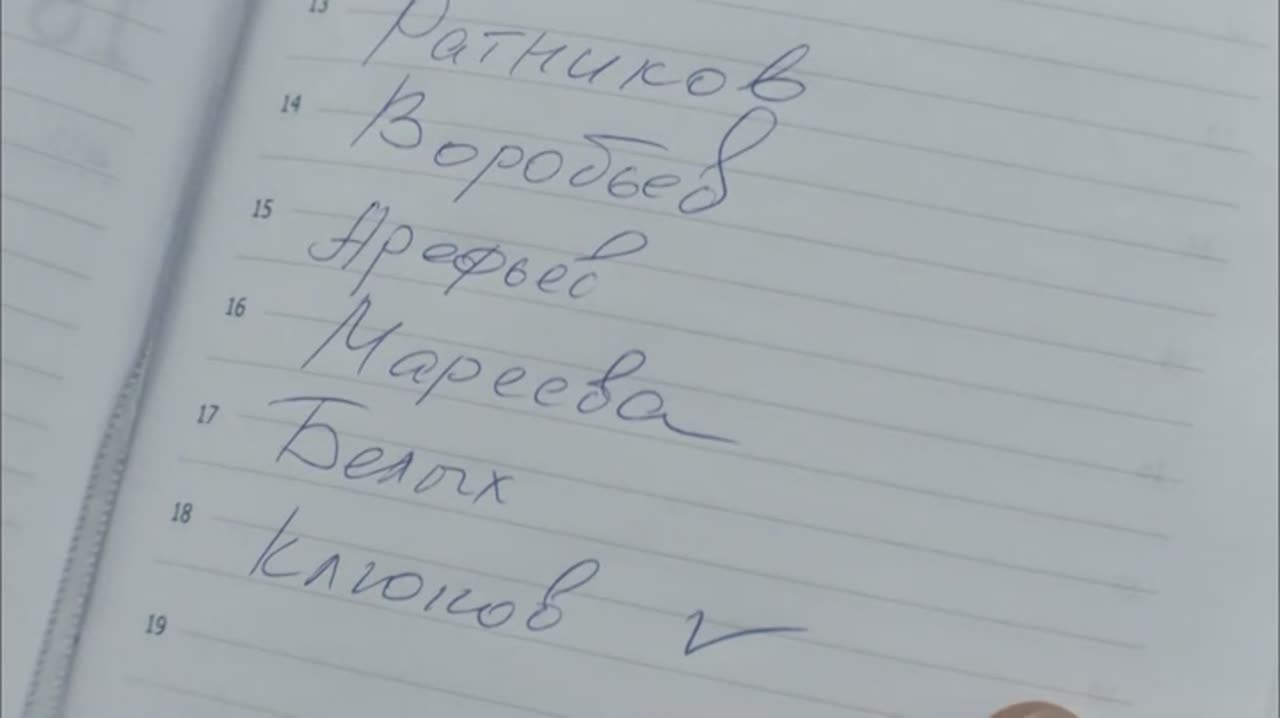 13
Ратников
14
Воробьев
15
Арефьев
16
Мареева
17
Белых
18
Клюков
19